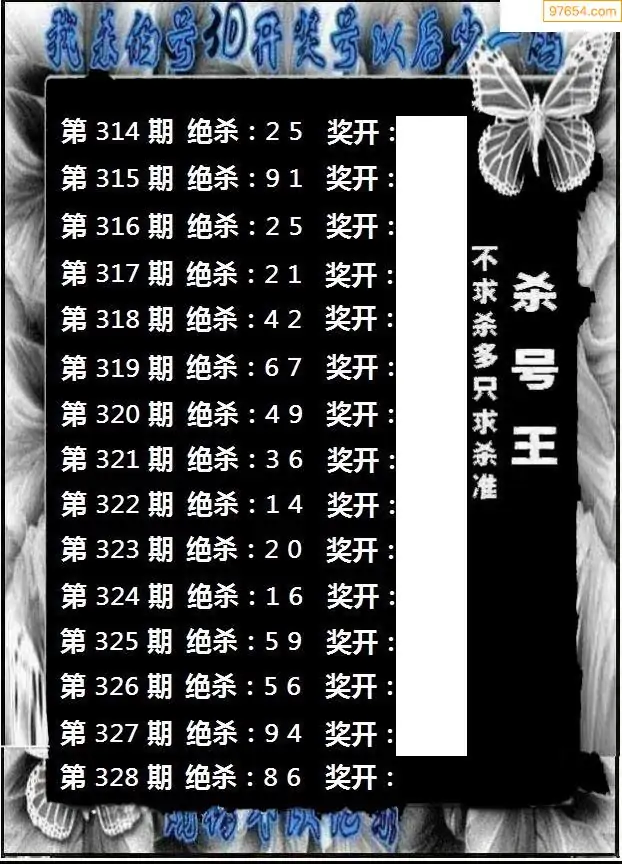 97654.com
我杀的号3D开奖号以后少一码
第 314 期 绝杀：2 5 奖开：
第 315 期 绝杀：9 1 奖开：
第 316 期 绝杀：2 5 奖开：
第 317 期 绝杀：2 1 奖开：
第 318 期 绝杀：4 2 奖开：
第 319 期 绝杀：6 7 奖开：
第 320 期 绝杀：4 9 奖开：
第 321 期 绝杀：3 6 奖开：
第 322 期 绝杀：1 4 奖开：
第 323 期 绝杀：2 0 奖开：
第 324 期 绝杀：1 6 奖开：
第 325 期 绝杀：5 9 奖开：
第 326 期 绝杀：5 6 奖开：
第 327 期 绝杀：9 4 奖开：
第 328 期 绝杀：8 6 奖开：
杀号王
不求杀多只求杀准